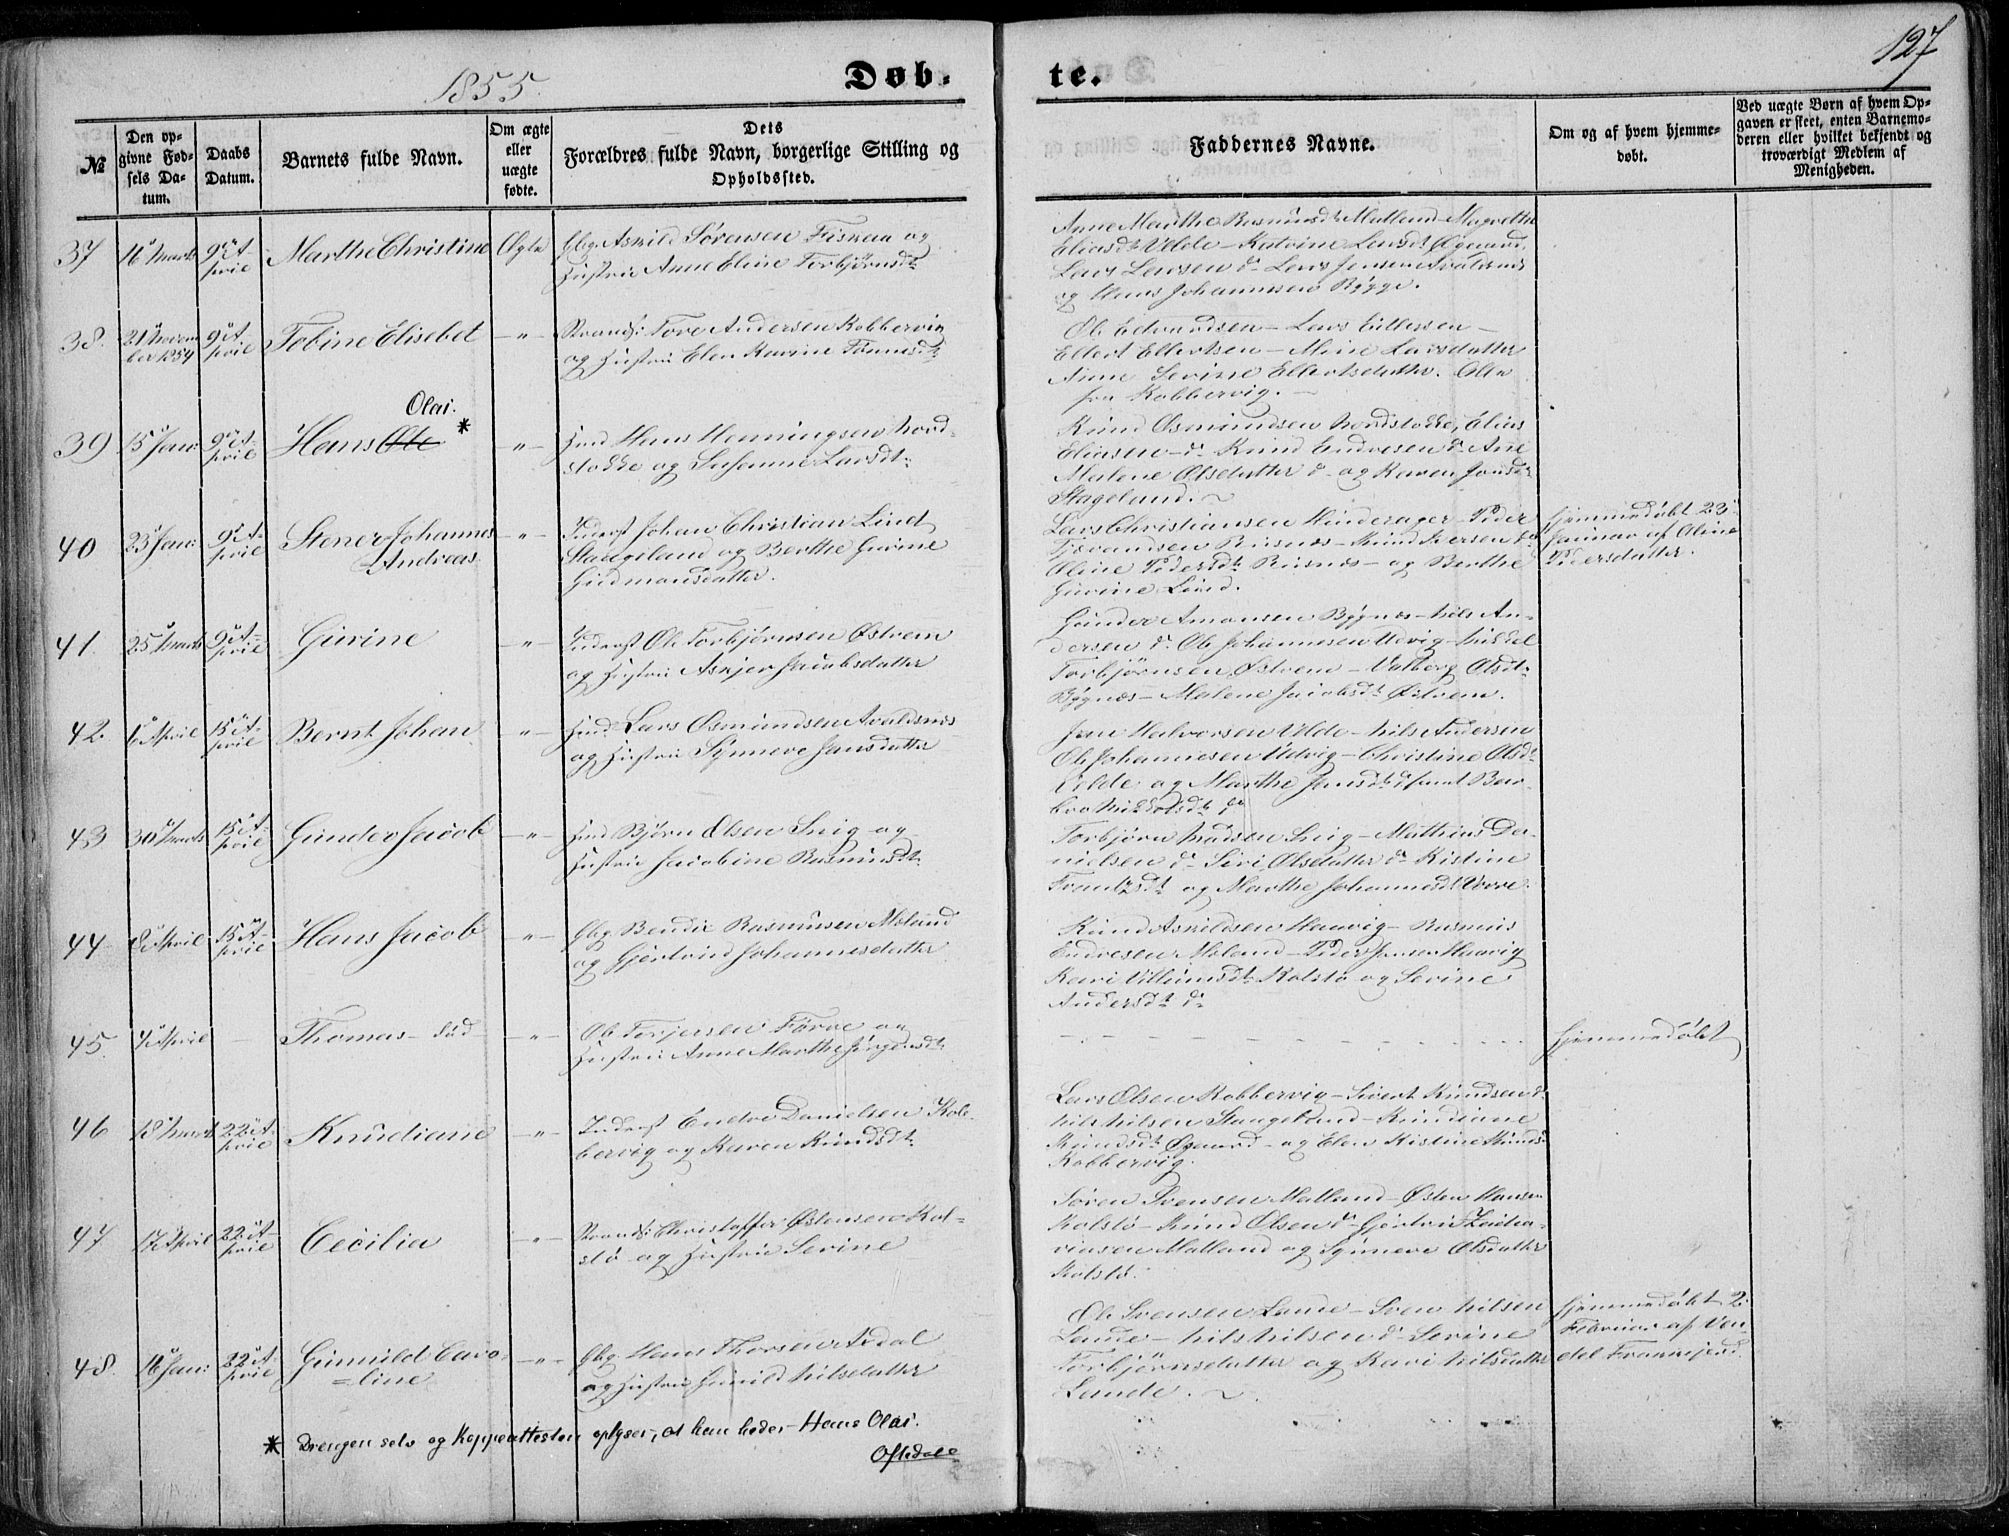 1855.
Døb-
te.
127
№
Den op-
givne Fød-
sels Da-
tum.
Daabs
Datum.
Barnets fulde Navn.
Om ægte
eller
uægte
fødte.
Dets
Forældres fulde Navn, borgerlige Stilling og
Opholdssted.
Faddernes Navne.
Om og af hvem hjemme-
døbt.
Ved uægte Børn af hvem Op-
gaven er skeet, enten Barnemo-
deren eller hvilket bekjendt og
troværdigt Medlem af
Menigheden.
37
16 Marts
9 A-
pril
Marthe Christine
Ægte
Gbg. Askild Sørensen Fiskaa og
Hustrue Anne Eline Torbjørnsdt
Anne Marthe Rasmusdt Matland Magrethe
Eliasdt Velde - Katrine Larsdt Øgaard,
Lars Larsen do Lars Jensen Avaldsnes
og Hans Johannesen Bygge.
38.
21 Novem
ber 1854
9 A-
pril
Tobine Elisebet
-"-
Strands: Tore Andersen Kobbervig
og Hustrue Elen Karine Tønnesdt
Ole Edvardsen - Lars Eillersen -
Ellert Ellertsen - Marie Larsdatter
Anne Serine Ellertsdatter. Alle
fra Kobbervig.
39
15 Jan:
9 A-
pril
Olai.
Hans Ole *
-"-
Hmd Hans Henningsen Nord-
stokke og Susanne Larsdt
Knud Osmundsen Nordstokke, Elias
Eliasen do Knud Endresen do Ane
Malene Olsdatter do og Karen Jonsdt
Stageland.
40
23 Jan:
9 A-
pril
Stener Johannes
Andreas
-"-
Inderst Johan Christian Lind
Stangeland og Berthe Gurine
Gudmansdatter.
Lars Christiansen Hinderager - Peder
Tjerandsen Risnes - Knud Iversen do
Oline Pedersdt Risnes - og Berthe
Gurine Lind.
Hjemmedøbt 23
Januar af Oline
Pedersdatter.
41
25 Marts
9 A-
pril
Gurine
-"-
Inderst Ole Torbjørnsen Østrem
og Hustrue Askjer Jacobsdatter
Gunder Amansen Bygnes - Nils An-
dersen do Ole Johannesen Udvig - Mikkel
Torbjørnsen Østrem - Valberg Olsdt
Bygnes - Malene Jacobsdt Østrem.
42
6 April
15 A-
pril
Bernt Johan
-"-
Hmd Lars Osmundsen Avaldsnes
og Hustrue Synneve Jansdatter
Jan Halvorsen Velde - Nils Andersen
Ole Johannesen Udvig - Christine Olsdt
Velde og Marthe Jansdt samt Bar-
bro Mikkelsdt do
43
30 Marts
15 A-
pril
Gunder Jacob
-"-
Hmd Bjørn Olsen Snig og
Hustrue Jacobine Rasmusdt
Torbjørn Madsen Snig - Mathias Da-
nielsen do Siri Olsdatter do Kistine
Frantzdt og Marthe Johannesdt Vorre.
44
8 April
15 A-
pril
Hans Jacob
-"-
Gbg. Bendix Rasmusen Meland
og Gjertrud Johannesdatter
Knud Askildsen Hauvig - Rasmus
Endresen Meland - Peder Jensen Hauvig
Kari Villumsdt Kolstø og Serine
Andersdt do
45.
4 April
-
Thomas - død
-"-
Ole Torjersen Førre og
Hustrue Anne Marthe Jørgensdt
Hjemmedøbt
46
18 Marts
22 A-
pril
Knudiane
-"-
Inderst Endre Danielsen Kob-
bervig og Karen Knudsdt
Lars Olsen Kobbervig - Sivert Knudsen do
Nils Nilsen Stangeland - Knudianne
Knudsdt Øgaard - og Elen Kistine Knuds-
Kobbervig.
47
17 April
22 A-
pril
Cecilia
-"-
Strands: Christoffer Østensen Kol-
stø og Hustrue Serine
Søren Svensen Matland - Østen Hansen
Kolstø - Knud Olsen do Gjertrud Zacha-
riasen Matland og Synneve Olsdatter
Kolstø.
48.
16 Jan:
22 A-
pril
Gunnild Caro-
=line
-"-
Gbg. Hans Thorsen Ardal
og Hustrue Gunild Nilsdatter
Ole Svensen Lande - Sven Nilsen
Lande - Nils Nilsen do Serine
Torbjørnsdatter og Kari Nilsdatter
Lande.
Hjemmedøbt 2
Februar af
* Drengen selv og Koppeattesten oplyser, at han heder Hans Olai.
Oftedal